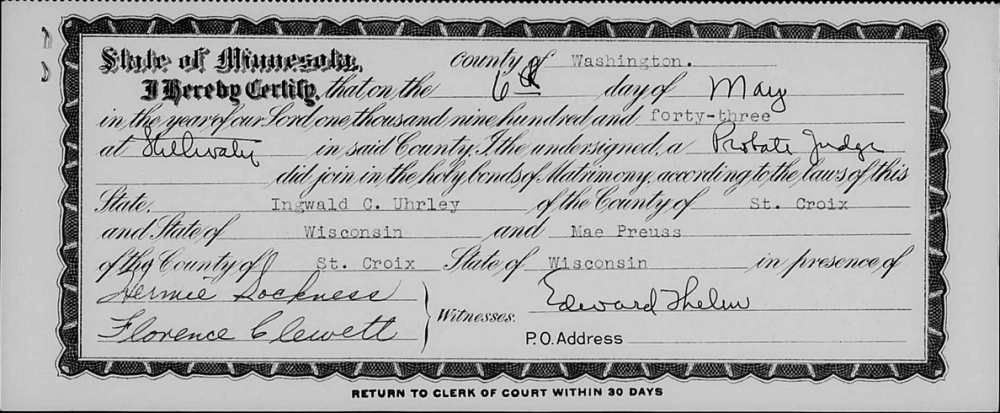 State of Minnesota, County of Washington.
I Hereby Certify, that on the 6th day of May
in the year of our Lord one thousand nine hundred and forty-three
at Stillwater in said County, I the undersigned, a Probate Judge
did join in the holy bonds of Matrimony, according to the laws of this
State, Ingwald C. Uhrley of the County of St. Croix
and State of Wisconsin and Mae Preuss
of the County of St. Croix State of Wisconsin in presence of
Hermie Lockness
Florence Clewett
Witnesses.
Edward Thelen
P.O. Address
RETURN TO CLERK OF COURT WITHIN 30 DAYS